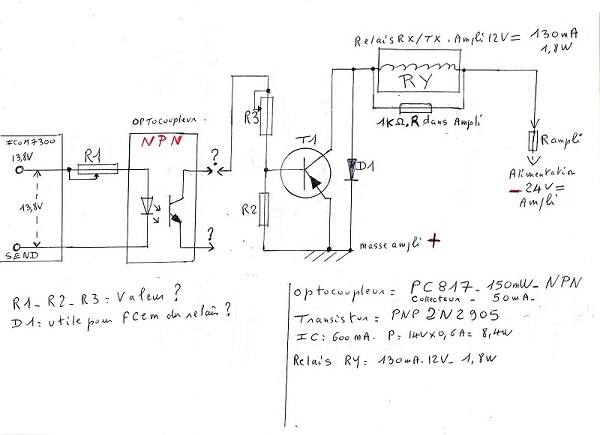 Relais RX/TX. Ampli 12V = 130mA
1,8W
RY
1KΩ. R dans Ampli
OPTOCOUPLEUR
NPN
ICOM7300
13,8V
R1
13,8V
SEND
?
?
R3
R2
T1
D1
R ampli
Alimentation
- 24V =
Ampli
masse ampli +
R1_ R2_ R3 = Valeur ?
D1 = utile pour FCem du relais ?
optocoupleur = PC817_ 150mW_ NPN
Collecteur - 50mA_
Transistor = PNP 2N2905
IC: 600mA. P= 14V x 0,6A = 8,4W
Relais RY = 130mA. 12V_ 1,8W